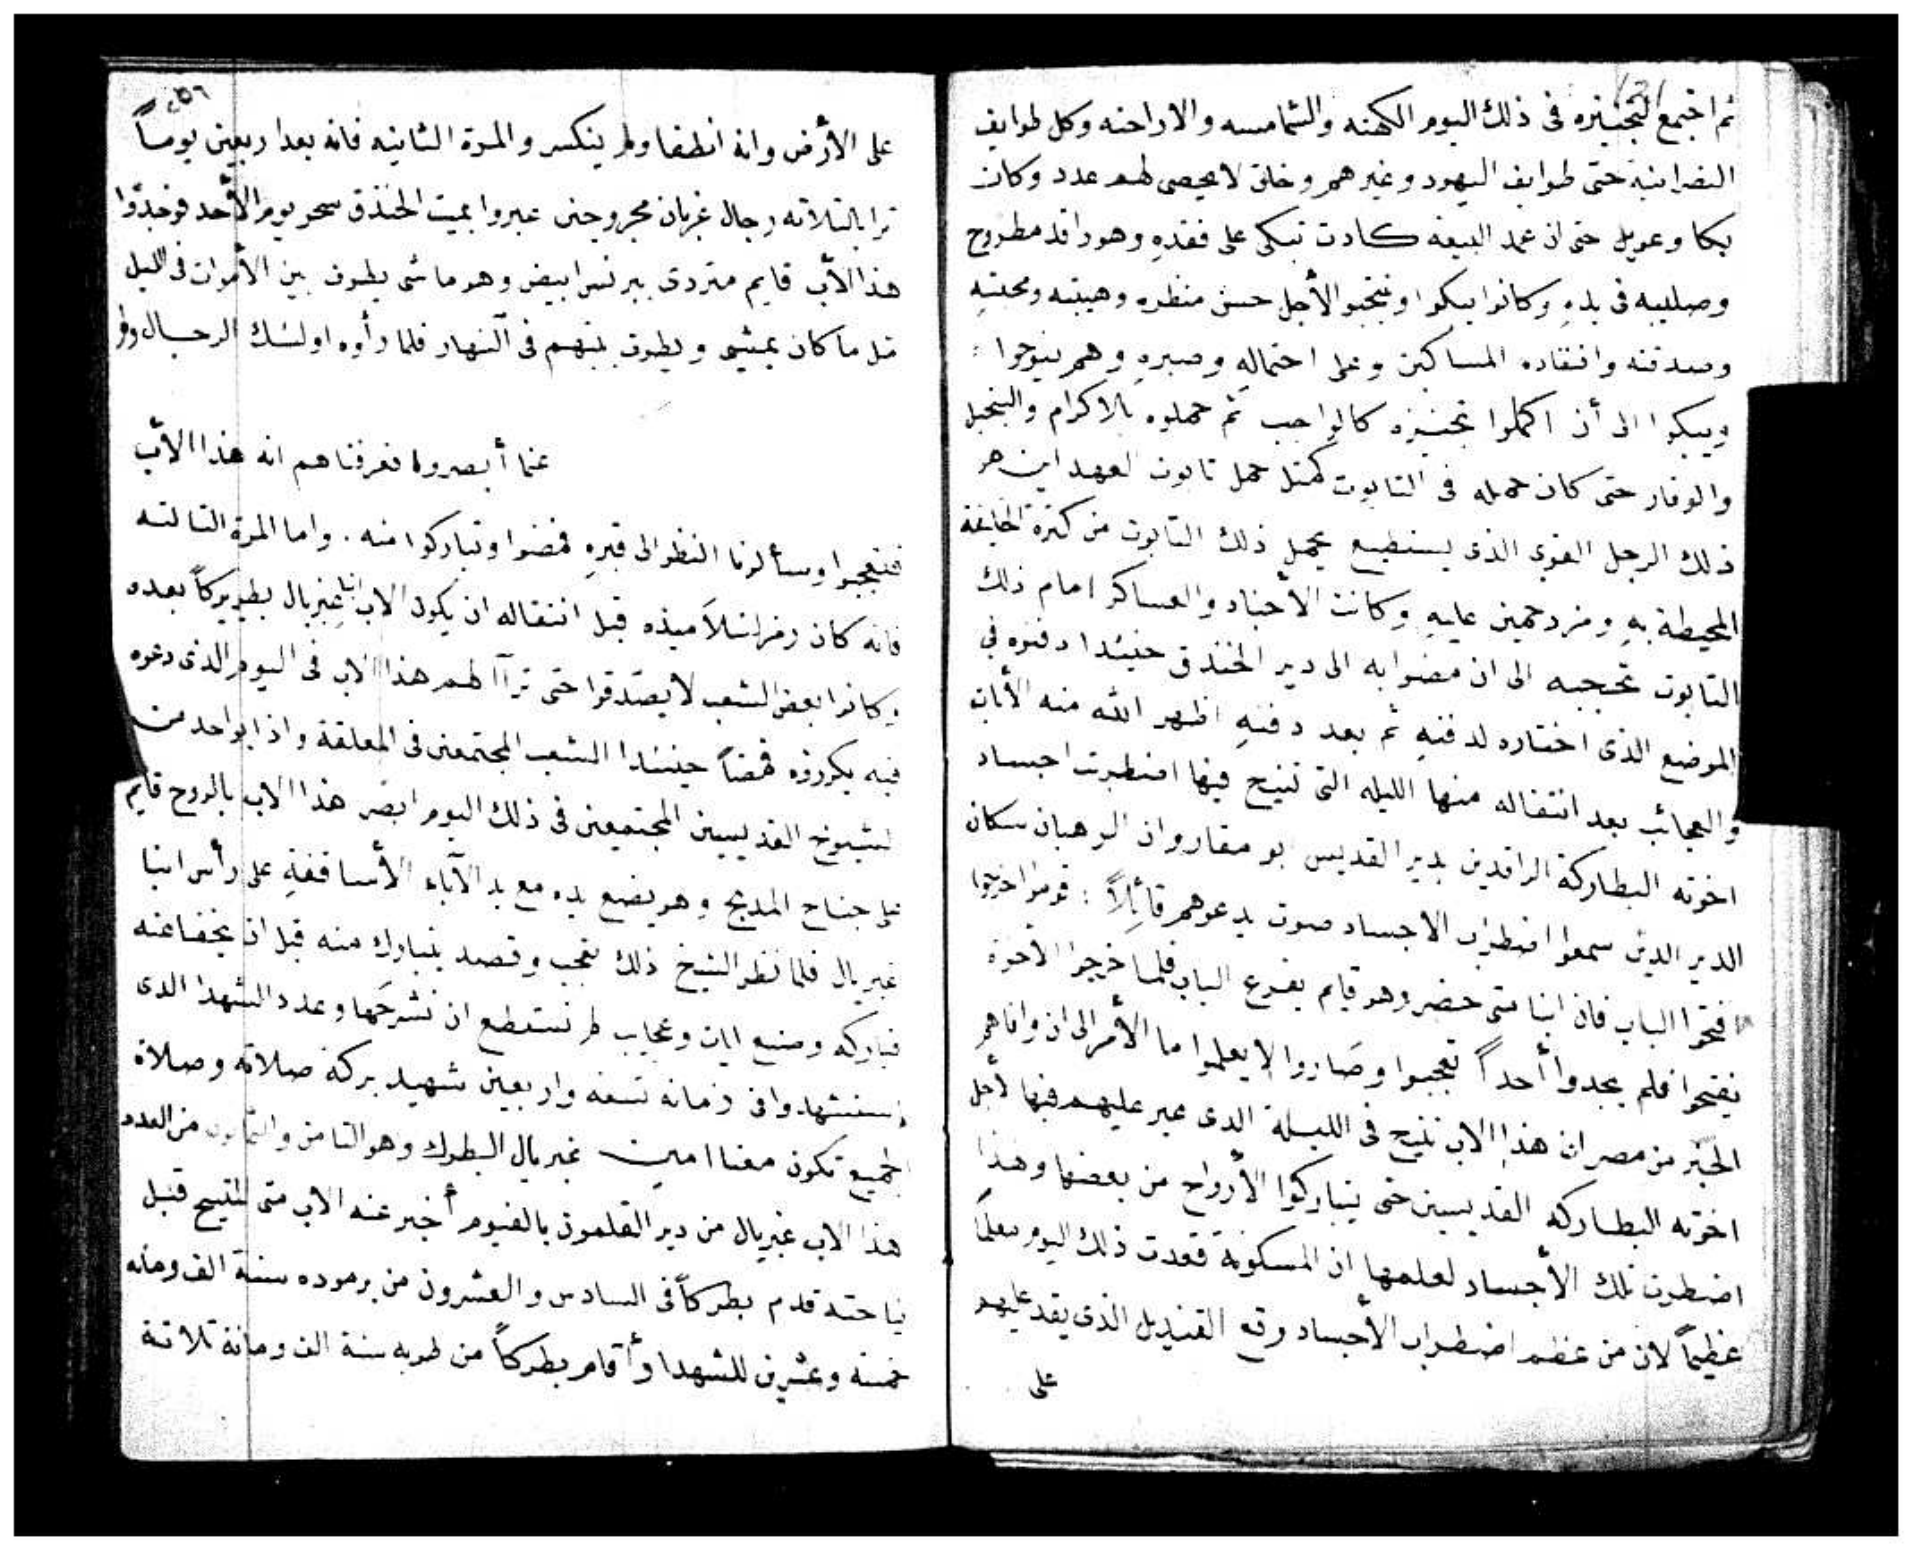 ثم اجتمع لتجنيزه فى ذلك اليوم الكهنه والشمامسه والاراخنه وكل طوايف
النصرانيه حتى طوايف اليهود وغيرهم وخلق لا يحصى لهم عدد وكان
بكا وعويل حتى ان عمد البيعه كادت تبكى على فقده وهو راقد مطروح
وصليبه فى يده وكانوا يبكوا وينتحبوا لأجل حسن منظره وهيبته ومحبته
وصدقته وافتقاده المساكين وعلى احتماله وصبره وهم ينوحوا
ويبكوا الى أن اكملوا تجنيزه كالواجب ثم حملوه بالاكرام والتبجيل
والوقار حتى كان حمله فى التابوت كمثل حمل تابوت العهد اين هو
ذلك الرجل القوى الذى يستطيع يحمل ذلك التابوت من كثرة الخليقة
المحيطة به ومزدحمين عليه وكانت الأجناد والعساكر امام ذلك
التابوت تحجبه الى ان مضوا به الى دير الخندق حينئذا دفنوه فى
الموضع الذى اختاره لدفنه ثم بعد دفنه اظهر الله منه الأيات
والعجائب بعد انتقاله منها الليله التى تنيح فيها اضطربت اجساد
اخوته البطاركة الراقدين بدير القديس بو مقار وان الرهبان سكان
الدير الذين سمعوا اضطراب الاجساد صوت يدعوهم قائلاً : قوموا اخرجوا
افتحوا الباب فان انبا متى حضر وهو قايم يقرع الباب فلما خرجوا الأخوة
يفتحوا فلم يجدوا أحداً تعجبوا وصاروا لا يعلموا ما الأمر الى ان وافاهم
الخبر من مصر ان هذا الاب تنيح فى الليلة الذى عبر عليهم فيها لأجل
اخوته البطاركه القديسين حتى يتباركوا الأرواح من بعضها وهذا
اضطربت تلك الأجساد لعلمها ان المسكونة فقدت ذلك اليوم معلماً
عظيماً لان من عظم اضطراب الأجساد وقع القنديل الذى يقد عليهم
على
٢٥٦
على الأرض وانه انطفا ولم ينكسر والمرة الثانيه فانه بعد اربعين يوماً
ترايا لثلاثه رجال غربان مجروحين عبروا بميت الخندق سحر يوم الأحد فوجدوا
هذا الأب قايم متردى ببرنس ابيض وهو ماشى يطوف بين الأموات فى الليل
مثل ما كان يمشى ويطوف بينهم فى النهار فلما رأوه اولئك الرجال
عنما أبصروه فعرفناهم انه هذا الأب
فتعجبوا وسألونا النظر الى قبره فمضوا وتباركوا منه . واما المرة الثالثه
فانه كان رمز لتلاميذه قبل انتقاله ان يكون الاب انبا غبريال بطريركاً بعده
وكانوا بعض الشعب لا يصدقوا حتى ترآا لهم هذا الاب فى اليوم الذى دعوه
فيه يكرزوه فمضاً حينئذا الشعب المجتمعين فى المعلقة واذا بواحد من
الشيوخ القديسين المجتمعين فى ذلك اليوم ابصر هذا الاب بالروح قايم
على جناح المذبح وهو يضع يده مع يد الآباء الأساقفة على رأس انبا
غبريال فلما نظر الشيخ ذلك تعجب وقصد يتبارك منه قبل ان يخفا عنه
فباركه وصنع ايات وعجايب لم نستطع ان نشرحها وعدد الشهدا الذى
استشهدوا فى زمانه تسعه واربعين شهيد بركة صلاته وصلاة
الجميع تكون معنا امين غبريال البطرك وهو الثامن والثمانون من العدد
هذا الاب غبريال من دير القلمون بالفيوم أخبر عنه الاب متى المتنيح قبل
نياحته قدم بطركاً فى السادس والعشرون من برموده سنة الف ومايه
خمسه وعشرين للشهدا وأقام بطركاً من طوبه سنة الف ومائة ثلاثة